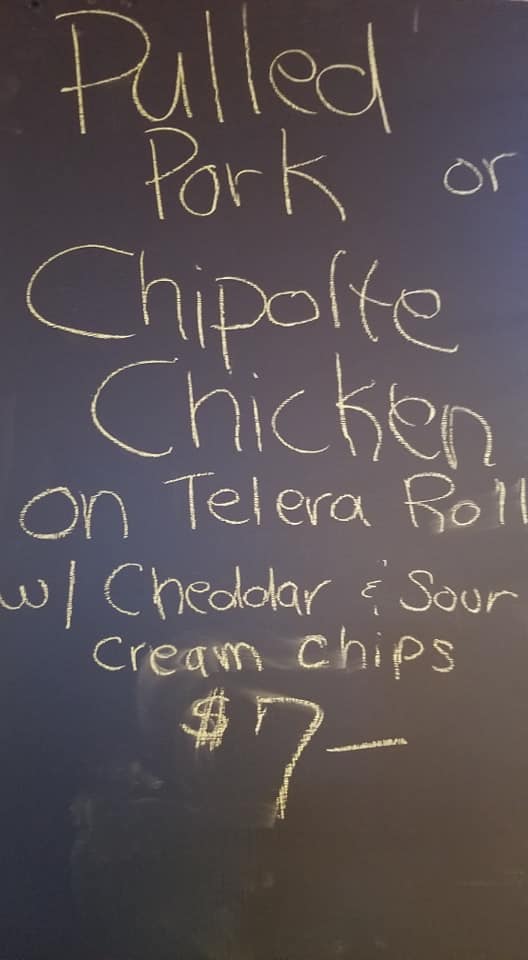 Pulled
Pork or
Chipolte
Chicken
on Telera Roll
w/ Cheddar & Sour
cream chips
$7—